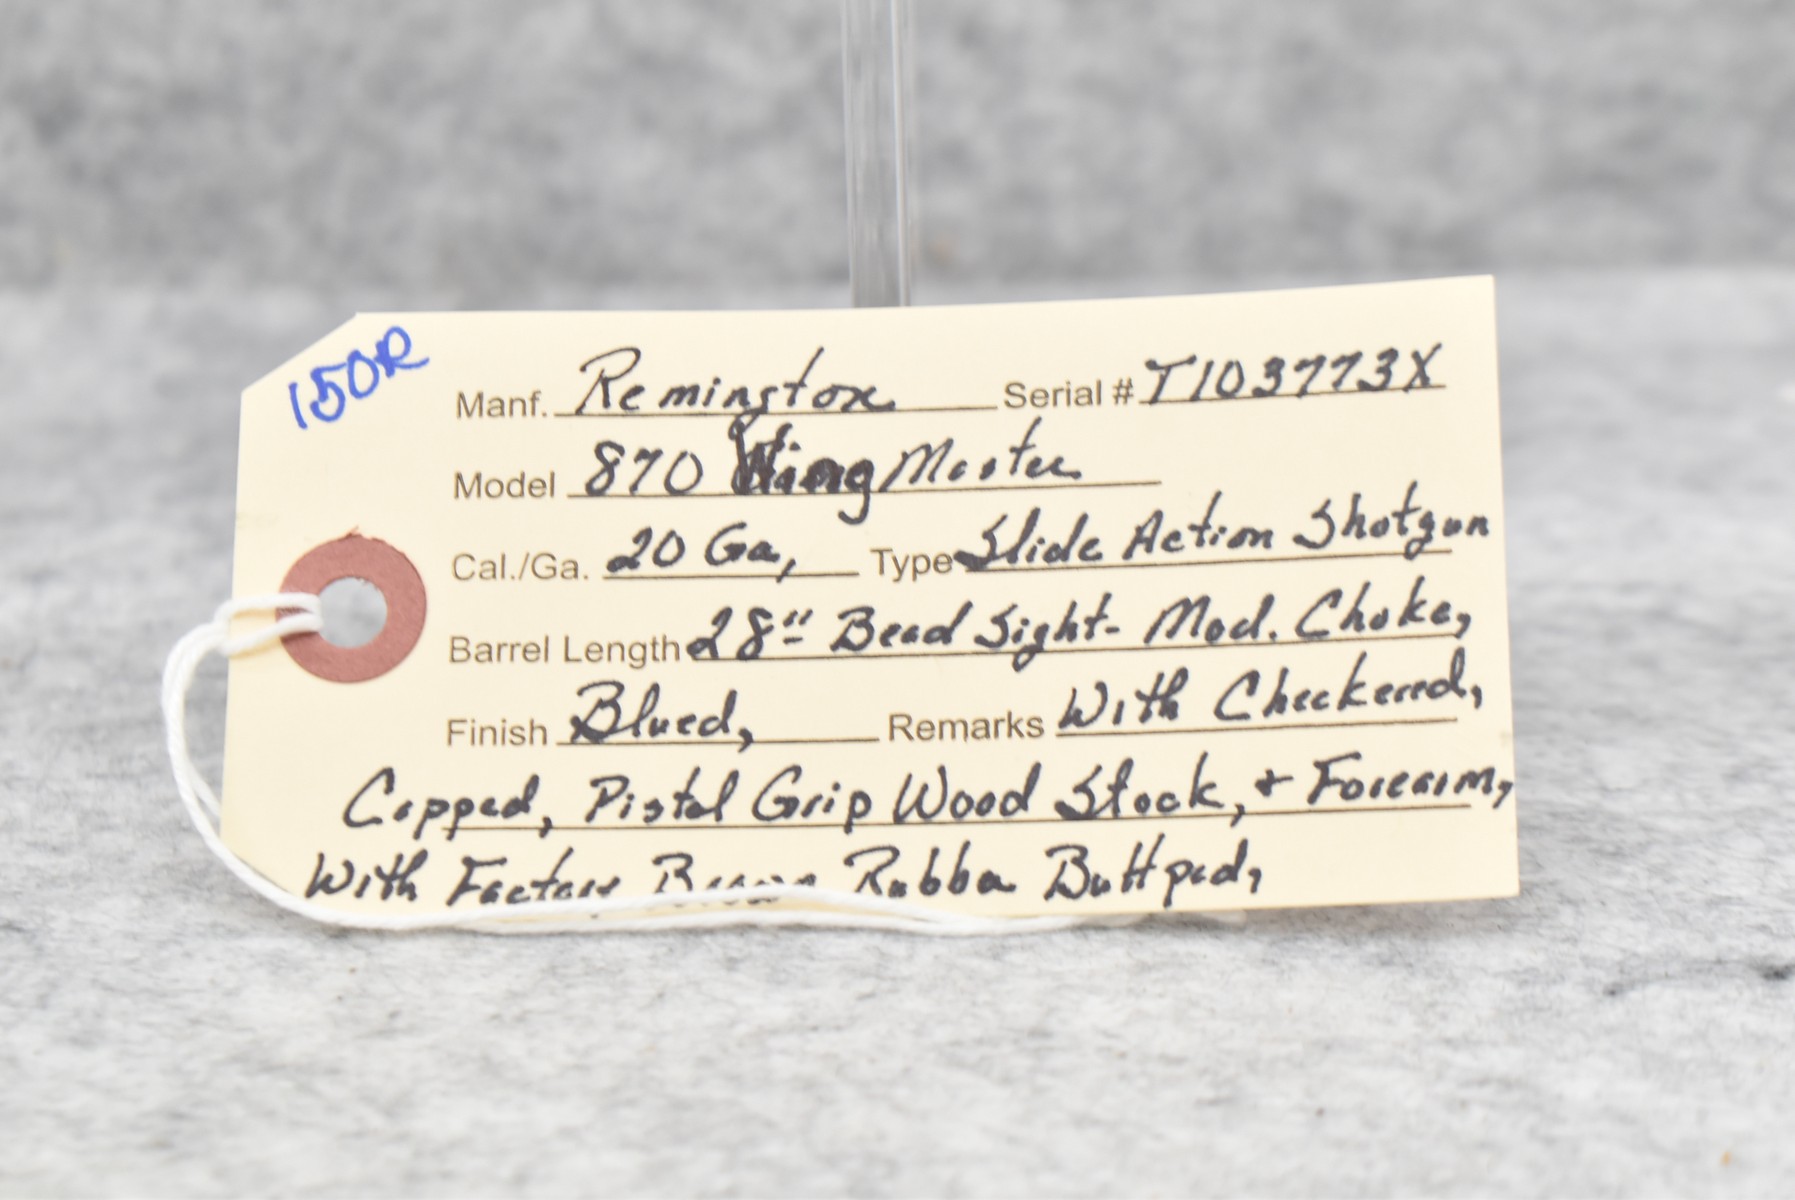 150R
Manf. Remington Serial # T103773X
Model 870 WingMaster
Cal./Ga. 20 Ga, Type Slide Action Shotgun
Barrel Length 28" Bead Sight - Mod. Choke,
Finish Blued, Remarks With Checkered,
Capped, Pistol Grip Wood Stock, + Forearm,
With Factory Brown Rubber Buttpad,